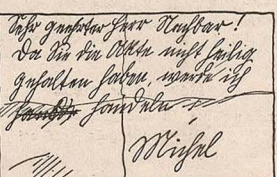 Sehr geehrter Herr Nachbar!
Da Sie die Akte nicht heilig
gehalten haben, werde ich
handeln
Michel